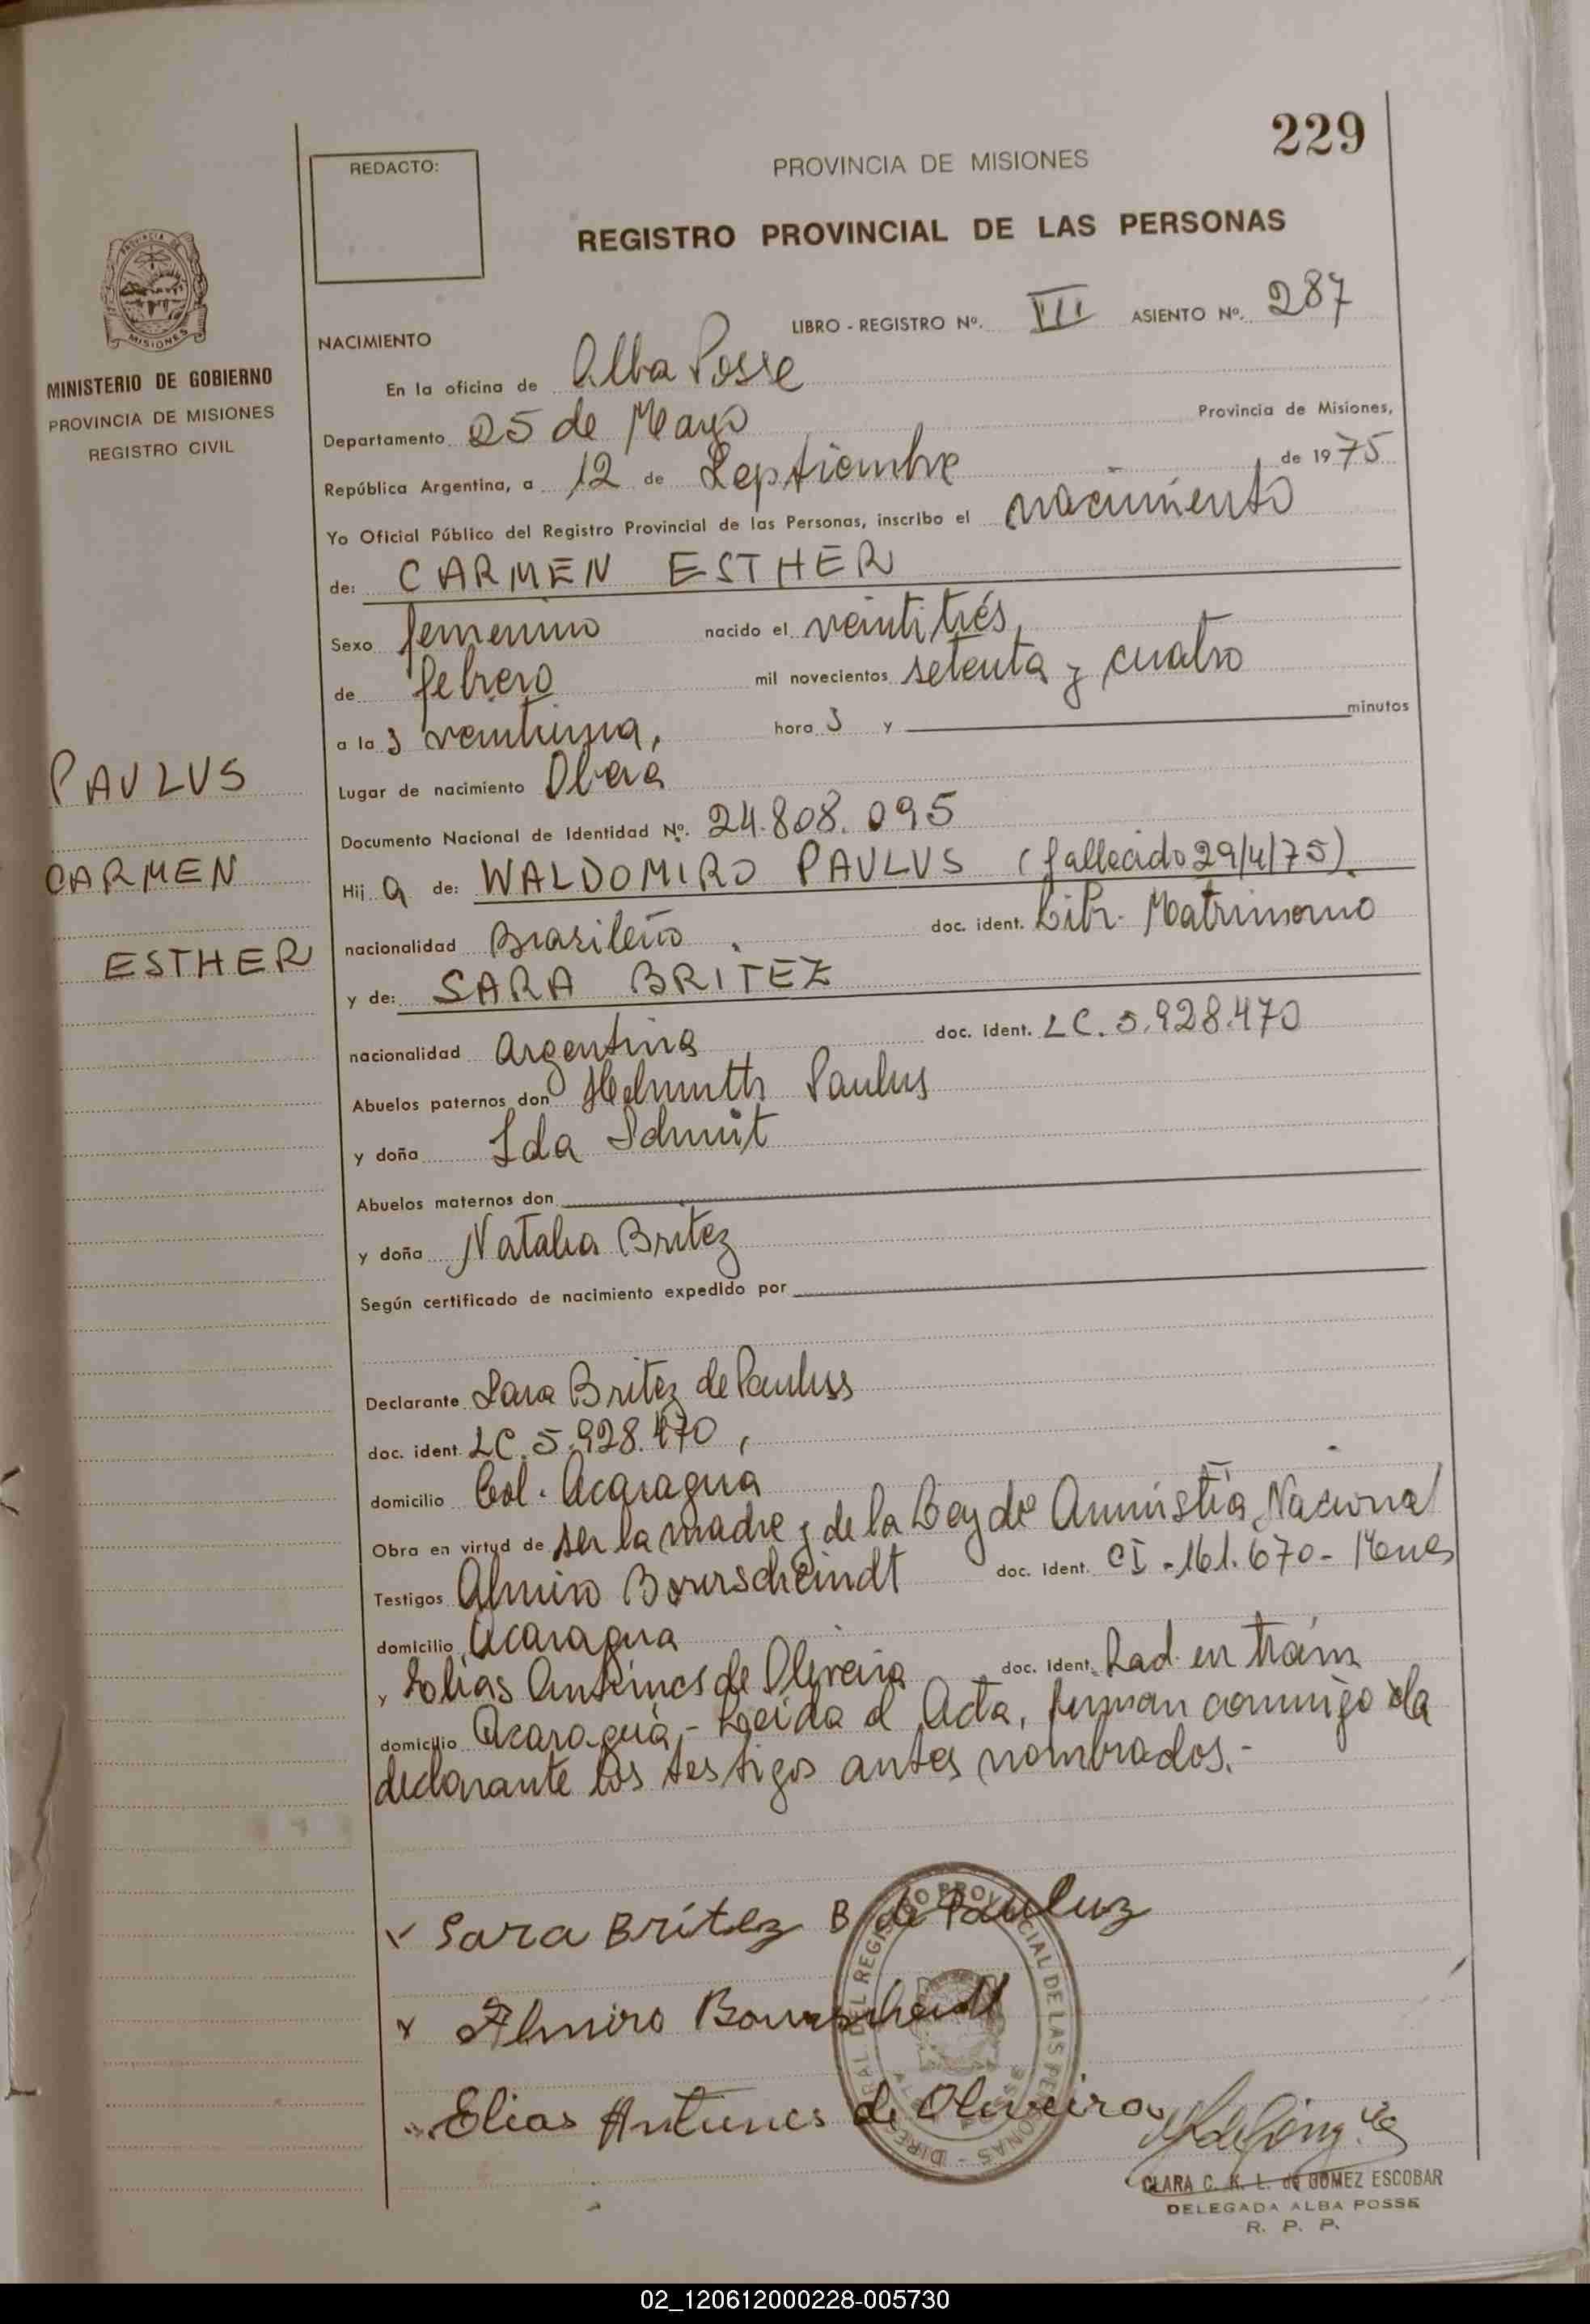 229
REDACTO:
PROVINCIA DE MISIONES
REGISTRO PROVINCIAL DE LAS PERSONAS
PROVINCIA DE
MISIONES
MINISTERIO DE GOBIERNO
PROVINCIA DE MISIONES
REGISTRO CIVIL
LIBRO - REGISTRO Nº. VII ASIENTO Nº. 287
NACIMIENTO
En la oficina de Alba Posse
Departamento 25 de Mayo Provincia de Misiones,
República Argentina, a 12 de Septiembre de 1975
Yo Oficial Público del Registro Provincial de las Personas, inscribo el nacimiento
de: CARMEN ESTHER
Sexo femenino nacido el veintitrés,
de febrero mil novecientos setenta y cuatro
a la s veintiuna, hora s y minutos
Lugar de nacimiento Obera
Documento Nacional de Identidad Nº. 24.808.095
PAULUS
CARMEN
ESTHER
Hij a de: WALDOMIRO PAULUS (fallecido 29/4/75).
nacionalidad Brasileño . doc. ident. Libr. Matrimonio
y de: SARA BRITEZ
nacionalidad argentina doc. ident. LC. 5.928.470
Abuelos paternos don Helmuth Paulus
y doña Ida Schmit
Abuelos maternos don
y doña Natalia Britez
Según certificado de nacimiento expedido por
Declarante Sara Britez de Paulus
doc. ident. LC. 5.928.470,
domicilio Col. Acaragua
Obra en virtud de ser la madre y de la Ley de Amnistía Nacional
Testigos Almiro Bourscheindt doc. Ident. CI - 161.670 - Mnes
domicilio Acaragua
y Elias Antunes de Oliveira doc. Ident. Rad. en trám
domicilio Acaraguá.- Leida el Acta, firman conmigo la
declarante los testigos antes nombrados.-
Sara Britez B de Pauluz
Almiro Bourscheidt
Elias Antunes de Oliveira
DIRECCION GENERAL DEL REGISTRO PROVINCIAL DE LAS PERSONAS
ALBA POSSE
CLARA C. K. L. de GOMEZ ESCOBAR
DELEGADA ALBA POSSE
R. P. P.
02_120612000228-005730